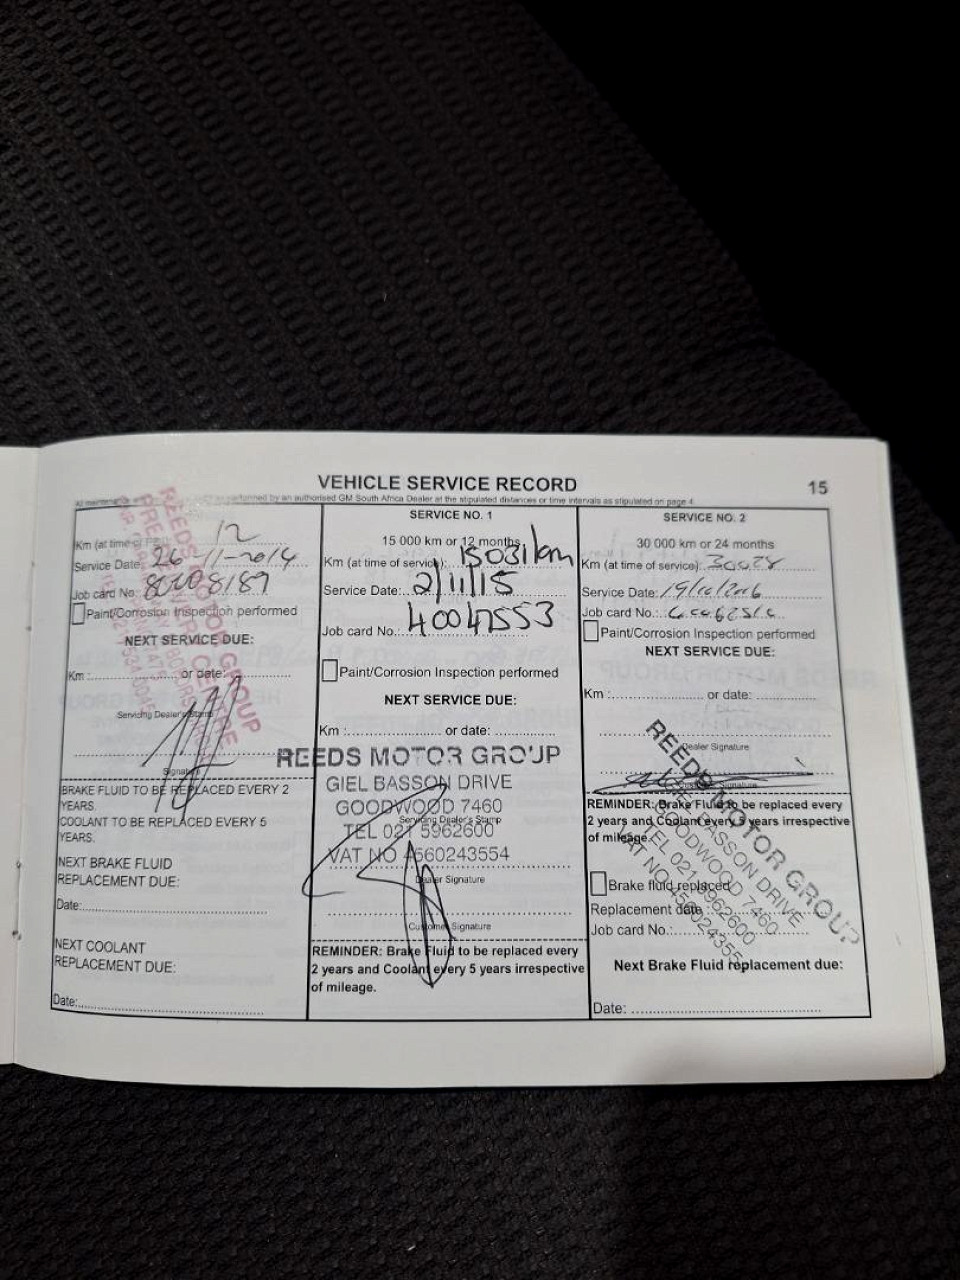 VEHICLE SERVICE RECORD
15
performed by an authorised GM South Africa Dealer at the stipulated distances or time intervals as stipulated on page 4
Km (at time of 12
Service Date: 26-11-2014
Job card No:
Paint/Corrosion Inspection performed
NEXT SERVICE DUE:
Km : or date:
Servicing Dealer's Stamp
Signature
REEDS MOTOR GROUP
BRAKE FLUID TO BE REPLACED EVERY 2
YEARS.
COOLANT TO BE REPLACED EVERY 5
YEARS.
NEXT BRAKE FLUID
REPLACEMENT DUE:
Date:
NEXT COOLANT
REPLACEMENT DUE:
Date:
SERVICE NO. 1
15 000 km or 12 months
Km (at time of service): 15031km
Service Date: 2/11/15
Job card No. 40047553
Paint/Corrosion Inspection performed
NEXT SERVICE DUE:
Km : or date:
REEDS MOTOR GROUP
GIEL BASSON DRIVE
GOODWOOD 7460
Servicing Dealer's Stamp
TEL 021 5962600
VAT NO 4560243554
Dealer Signature
Customer Signature
REMINDER: Brake Fluid to be replaced every
2 years and Coolant every 5 years irrespective
of mileage.
SERVICE NO. 2
30 000 km or 24 months
Km (at time of service):
Service Date: 19/10/2016
Job card No.:
Paint/Corrosion Inspection performed
NEXT SERVICE DUE:
Km : or date:
Dealer Signature
Signature
REEDS MOTOR GROUP
GIEL BASSON DRIVE
GOODWOOD 7460
TEL 021 5962600
VAT NO 4560243554
REMINDER: Brake Fluid to be replaced every
2 years and Coolant every 5 years irrespective
of mileage.
Brake fluid replaced
Replacement date
Job card No.:
Next Brake Fluid replacement due:
Date: